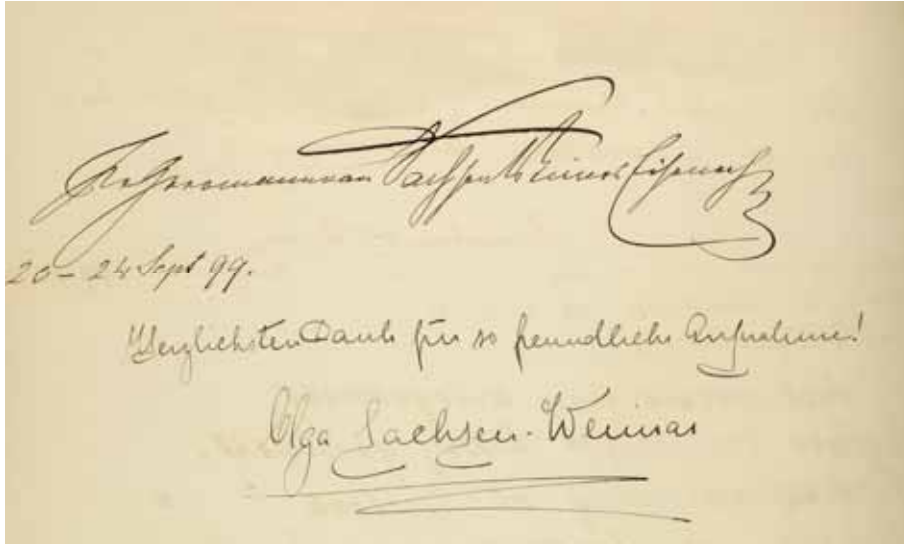 Hermann von Sachsen Weimar Eisenach
20 – 24 Sept 99.
Herzlichsten Dank für so freundliche Aufnahme!
Olga Sachsen-Weimar